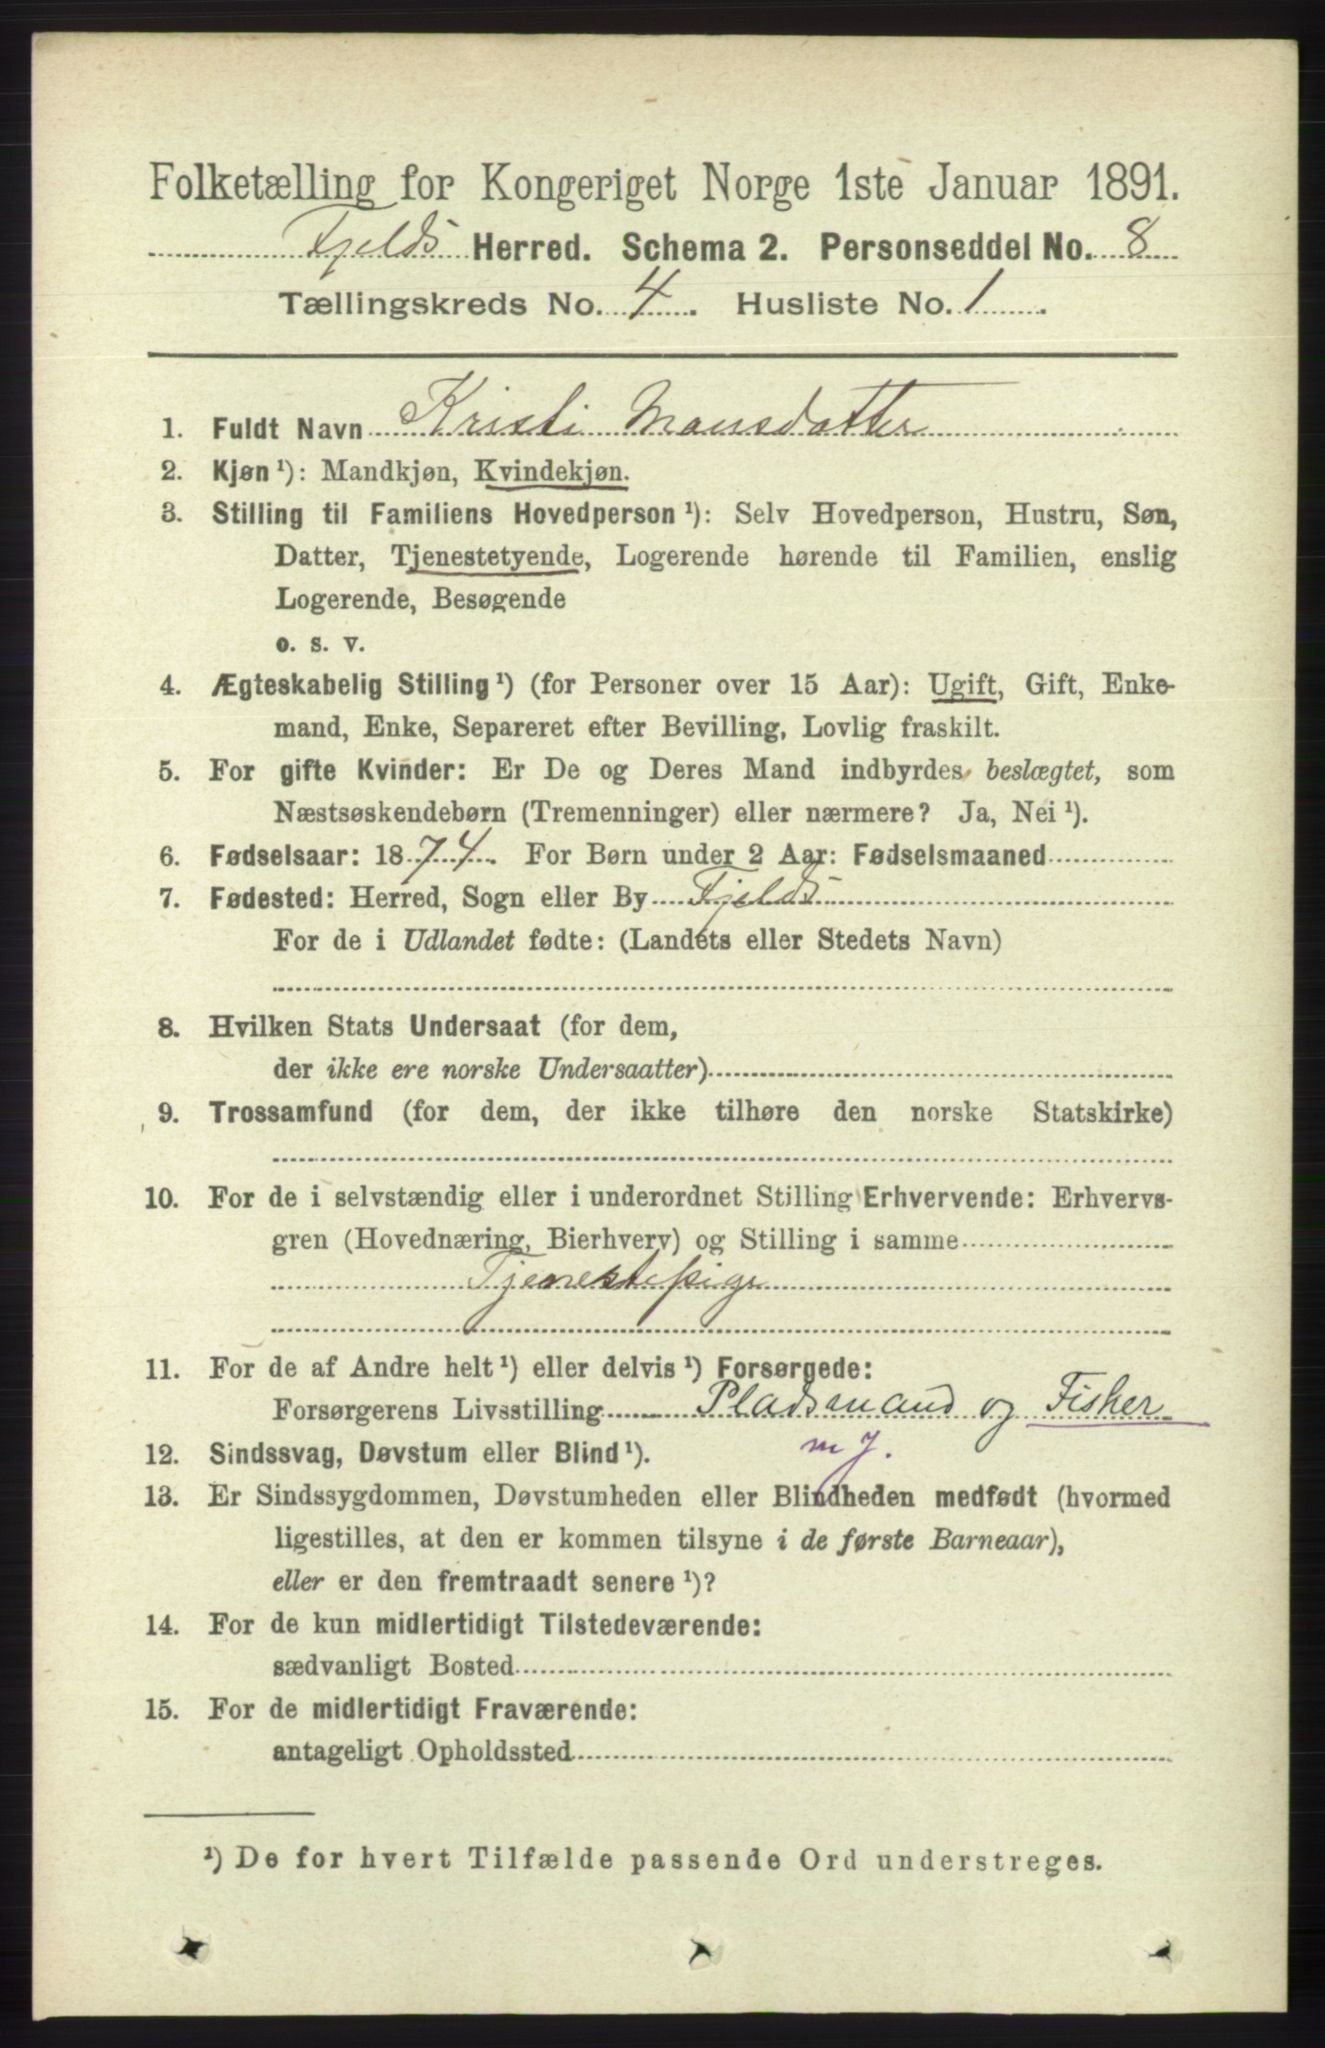 Folketælling for Kongeriget Norge 1ste Januar 1891.
Fjelds Herred. Schema 2. Personseddel No. 8
Tællingskreds No. 4. Husliste No. 1.
1. Fuldt Navn Kristi Monsdatter
2. Kjøn ¹): Mandkjøn, Kvindekjøn.
3. Stilling til Familiens Hovedperson ¹): Selv Hovedperson, Hustru, Søn,
Datter, Tjenestetyende, Logerende hørende til Familien, enslig
Logerende, Besøgende
o. s. v.
4. Ægteskabelig Stilling ¹) (for Personer over 15 Aar): Ugift, Gift, Enke-
mand, Enke, Separeret efter Bevilling, Lovlig fraskilt.
5. For gifte Kvinder: Er De og Deres Mand indbyrdes beslægtet, som
Næstsøskendebørn (Tremenninger) eller nærmere? Ja, Nei ¹).
6. Fødselsaar: 1874. For Børn under 2 Aar: Fødselsmaaned
7. Fødested: Herred, Sogn eller By Fjelds
For de i Udlandet fødte: (Landets eller Stedets Navn)
8. Hvilken Stats Undersaat (for dem,
der ikke ere norske Undersaatter)
9. Trossamfund (for dem, der ikke tilhøre den norske Statskirke)
10. For de i selvstændig eller i underordnet Stilling Erhvervende: Erhvervs-
gren (Hovednæring, Bierhverv) og Stilling i samme
Tjenestepige
11. For de af Andre helt ¹) eller delvis ¹) Forsørgede:
Forsørgerens Livsstilling Pladsmand og Fisher
12. Sindssvag, Døvstum eller Blind ¹).
13. Er Sindssygdommen, Døvstumheden eller Blindheden medfødt (hvormed
ligestilles, at den er kommen tilsyne i de første Barneaar),
eller er den fremtraadt senere ¹)?
14. For de kun midlertidigt Tilstedeværende:
sædvanligt Bosted
15. For de midlertidigt Fraværende:
antageligt Opholdssted
¹) De for hvert Tilfælde passende Ord understreges.